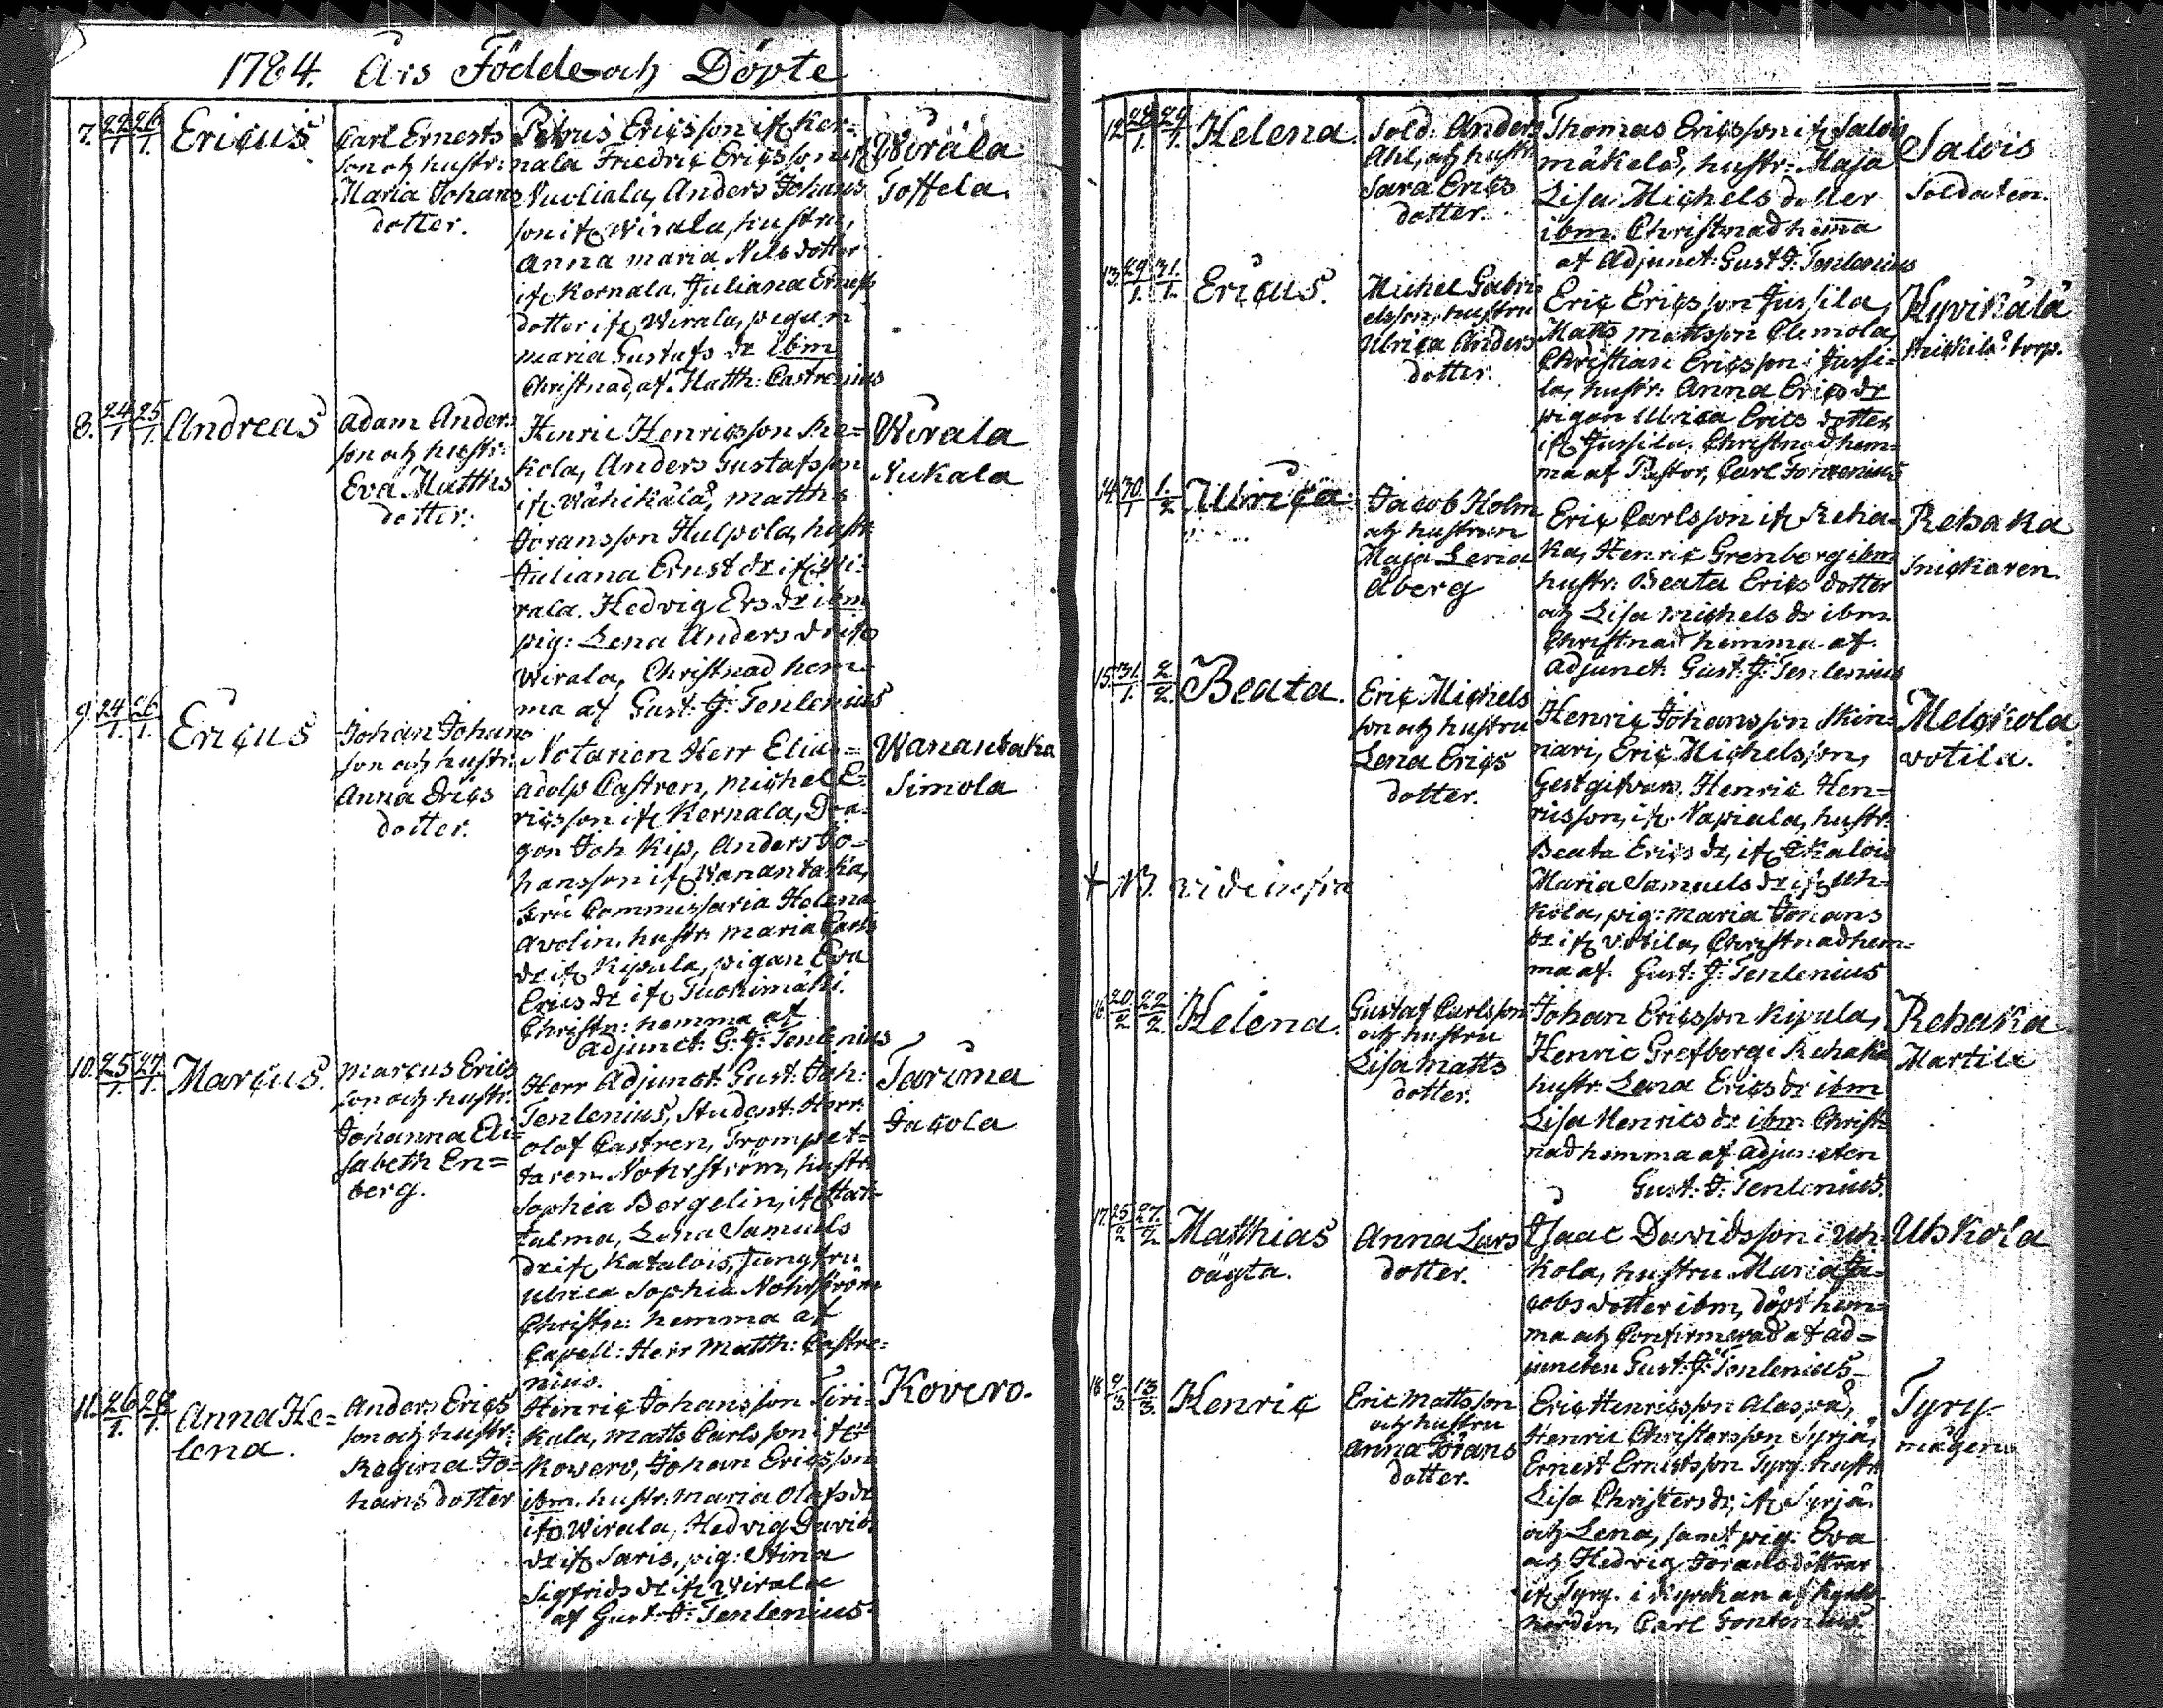 1784. Års Födde och Döpte
7. 22/1 26/1. Ericus
Carl Ernests
son och hustr:
Maria Johans
dotter.
Petrus Ericsson ifr Ker=
nala Friedric Ericsson ifr
Nuoliala, Anders Johans
son ifr Wirala, hustru,
Anna maria Nils dotter
ifr Kernala, Juliana Ernests
dotter ifr Wirala, pigan
maria Gustafs dr ibm
Christnad, af Matth: Castrenius
Wirala
Toffela.
8. 24/1 25/1. Andreas
Adam Anders
son och hustr:
Eva Matths
dotter.
Henric Henricsson Ke=
kola, Anders Gustafsson
ifr Wähikälä, matths
Joransson Hulpola, hustr
Juliana Ernst dr ifr Wi:
rala. Hedvig Ers dr ibm
pig: Lena Anders dr ifr
Wirala, Christnad hem=
ma af Gust: J: Tenlenius
Wirala
Nukala
9. 24/1. 26/1. Ericus
Johan Johans
son och hustr:
Anna Erics
dotter.
Notarien Herr Elias=
Adolp Castren, michel E=
ricsson ifr Kernala, Dra=
gon Joh Kip, Anders Jo=
hansson ifr Wanantaka,
Fru Commissaria Helena
Avolin, hustr: maria Carls
dr ifr Kipula, pigan Eva
Erics dr ifr Tuokimäki.
Christn: hemma af
Adjunct: G: J: Tenlenius
Wanantaka
Simola
10. 25/1 27/1. Marcus.
Marcus Erics
son och hustr:
Johanna Eli=
sabeth En=
berg.
Herr Adjunct: Gust: Joh:
Tenlenius, Student: Herr:
olof Castren, Trompet=
taren Nohrström, hustr.
Sophia Bergelin, ifr Hat=
tulma, Lena Samuels
dr ifr Katulois, Jungfru
ulrica Sophia Nohrström
Christn: hemma af
Capell: Herr Matth: Castre=
nius.
Jarima
Jacola
11. 26/1. 28/1. Anna He=
lena.
Anders Erics
son och hustr:
Regina Jo=
hans dotter
Henric Johansson Siri=
kala, Matts Carlsson ifr
Kovero, Johan Ericsson
ibm. hustr: maria Olofs dr
ifr Wirala, Hedvig Davids
dr ifr Saris, pig: Stina
Sigfrids dr ifr Wirala
af Gust: J: Tenlenius.
Kovero.
12. 28/1. 29/1. Helena.
Sold: Anders
Ahl, och hustr
Sara Erics
dotter.
Thomas Ericsson ifr Salois
mäkelä, hustr: Maja
Lisa Michels dotter
ibm. Christnad hemma
af Adjunct: Gust J: Tenlenius
Salois
Soldaten.
13. 29/1. 31/1. Ericus.
Michel Gabri=
elsson, hustru
Ulrica Anders
dotter.
Eric Ericsson Jussila,
Matts Mattsson Clemola,
Christian Ericsson Jussi=
la, hustr: Anna Erics dr
pigan Ulrica Erics dotter
ifr Jussila. Christnad hem=
ma af Pastor, Carl Fontenius
Hyvikälä
torp.
14. 30/1 1/2. Ulrica.
Jacob Holm
och hustrun
Maja Lena
Åberg
Eric Carlsson ifr Reha=
ka, Henric Grenberg ibm
hustr: Beata Erics dotter
och Lisa michels dr ibm
Christnad hemma af
Adjunct: Gust: J: Tenlenius
Rehaka
Snickaren.
15. 31/1. 2/2. Beata.
Eric Michels
son och hustru
Lena Erics
dotter.
Henric Johansson Skin=
nari, Eric Michelsson,
Gestgifvare, Henric Hen=
ricsson, ifr Napiala, hustr:
Beata Erics dr, ifr Ekalois
Maria Samuels dr ifr Uh=
kola, pig: Maria Johans
dr ifr Votila, Christnad hem=
ma af. Gust: J: Tenlenius
Melckola
votila.
+ NB. vide infra
16. 20/2 22/2. Helena.
Gustaf Carlsson
och hustru
Lisa Matts
dotter.
Johan Ericsson Kipula,
Henric Grefberg i Rehaka
hustr: Lena Erics dr ibm
Lisa Henrics dr ibm. Christ=
nad hemma af Adjuncten
Gust: J: Tenlenius.
Rehaka
Martila
17. 25/2 27/2. Matthias
oägta.
Anna Lars
dotter.
Isaac Davidsson i Uh=
kola, hustru Maria Ja=
cobs dotter ibm, döpt hem=
ma och Confirmerad af Ad=
juncten Gust: J: Tenlenius_
Uhkola
18 9/3 13/3. Henric
Eric Mattsson
och hustru
Anna Jörans
dotter.
Eric Henricsson Alaspä,
Henric Christersson Syrjä,
Ernest Ernestsson Tyry. hustr
Lisa Christers dr, ifr Syrjä.
och Lena, samt pig: Eva
och Hedvig Jörans döttrar
ifr Tyry. i Kyrckan af Kyrko
herden, Carl Fontenius.
Tyry
mågens